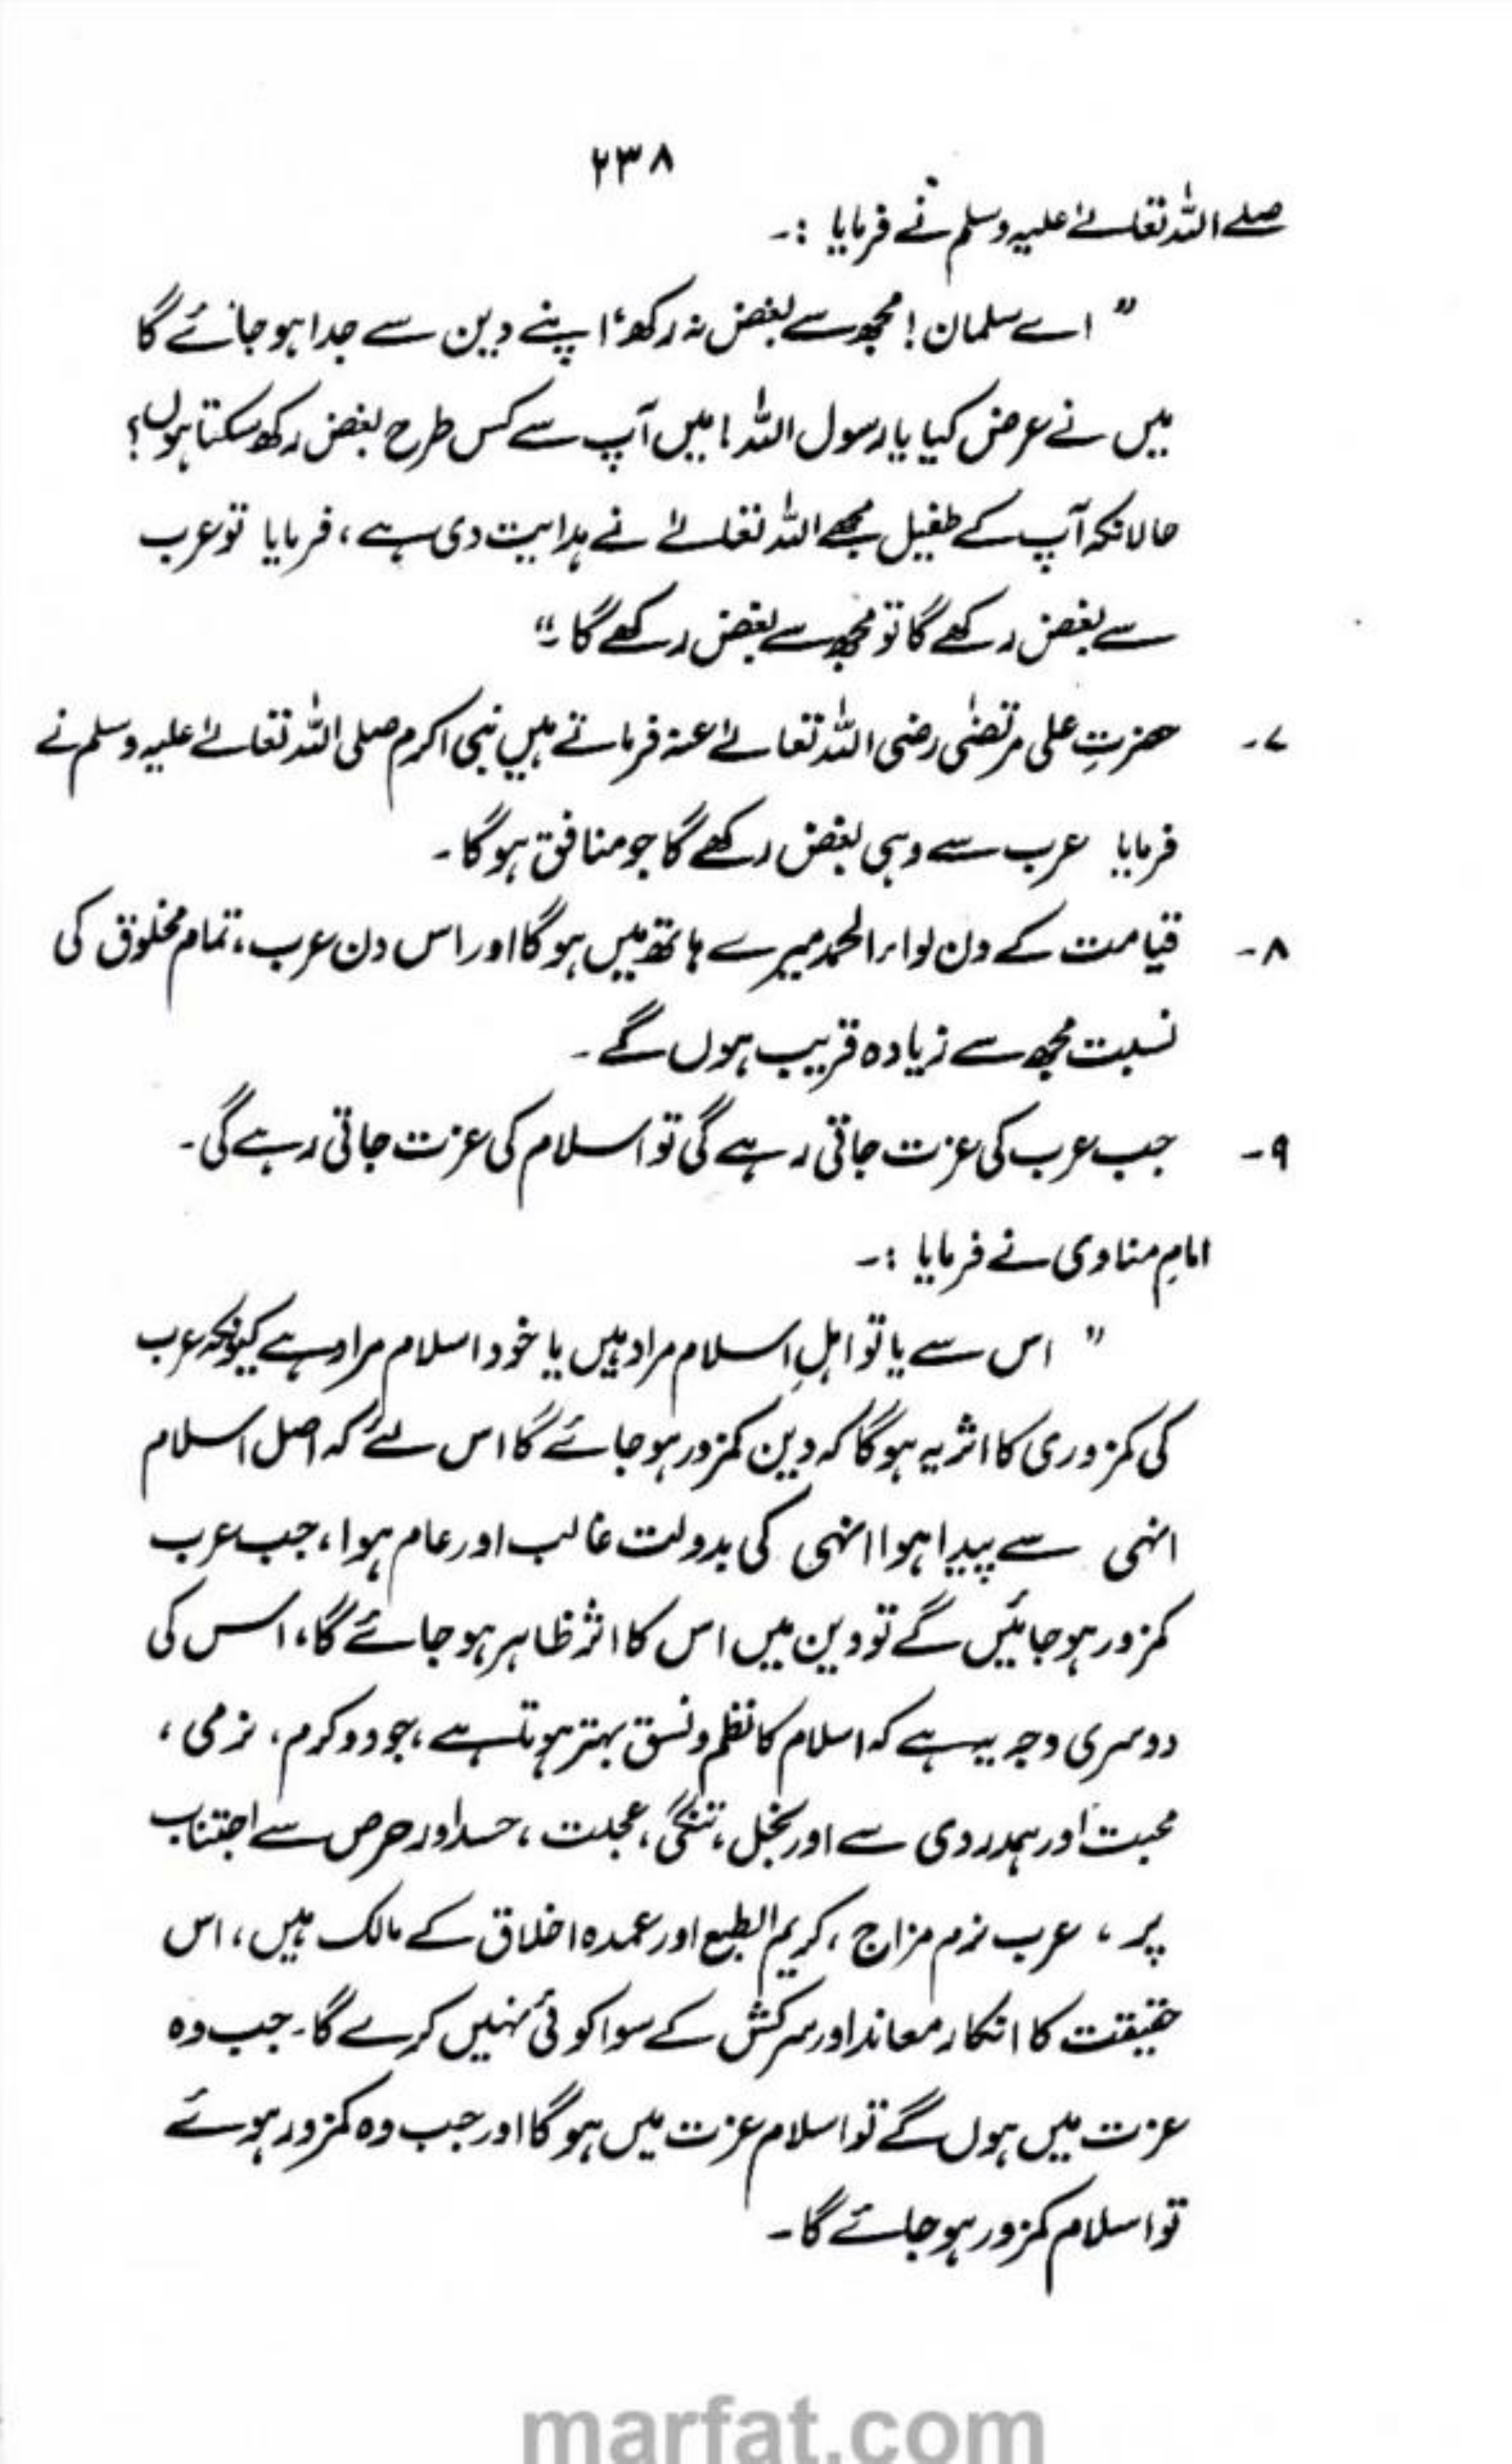 ۲۳۸
صلے اللہ تعالےٰ علیہ وسلم نے فرمایا :۔
” اے سلمان! مجھ سے بغض نہ رکھ، اپنے دین سے جدا ہو جائے گا
میں نے عرض کیا یا رسول اللہ! میں آپ سے کس طرح بغض رکھ سکتا ہوں؟
حالانکہ آپ کے طفیل مجھے اللہ تعالےٰ نے ہدایت دی ہے، فرمایا تو عرب
سے بغض رکھے گا تو مجھ سے بغض رکھے گا۔“
۷۔ حضرتِ علی مرتضٰی رضی اللہ تعالےٰ عنہ فرماتے ہیں نبی اکرم صلی اللہ تعالےٰ علیہ وسلم نے
فرمایا عرب سے وہی بغض رکھے گا جو منافق ہو گا۔
۸۔ قیامت کے دن لواء الحمد میرے ہاتھ میں ہو گا اور اس دن عرب، تمام مخلوق کی
نسبت مجھ سے زیادہ قریب ہوں گے۔
۹۔ جب عرب کی عزت جاتی رہے گی تو اسلام کی عزت جاتی رہے گی۔
امامِ مناوی نے فرمایا :۔
” اس سے یا تو اہلِ اسلام مراد ہیں یا خود اسلام مراد ہے کیونکہ عرب
کی کمزوری کا اثر یہ ہو گا کہ دین کمزور ہو جائے گا اس لئے کہ اصل اسلام
انہی سے پیدا ہوا انہی کی بدولت غالب اور عام ہوا، جب عرب
کمزور ہو جائیں گے تو دین میں اس کا اثر ظاہر ہو جائے گا، اس کی
دوسری وجہ یہ ہے کہ اسلام کا نظم و نسق بہتر ہوتا ہے، جود و کرم، نرمی،
محبت اور ہمدردی سے اور بخل، تنگی، عجلت، حسد اور حرص سے اجتناب
پر، عرب نرم مزاج، کریم الطبع اور عمدہ اخلاق کے مالک ہیں، اس
حقیقت کا انکار معاند اور سرکش کے سوا کوئی نہیں کرے گا۔ جب وہ
عزت میں ہوں گے تو اسلام عزت میں ہو گا اور جب وہ کمزور ہوئے
تو اسلام کمزور ہو جائے گا۔
marfat.com